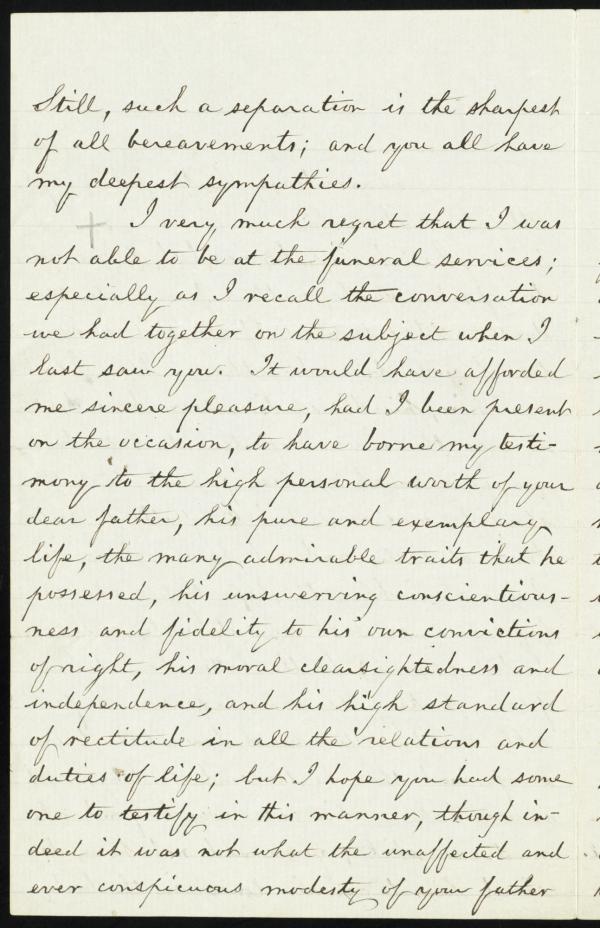 Still, such a separation is the sharpest
of all bereavements; and you all have
my deepest sympathies.
I very much regret that I was
not able to be at the funeral services;
especially as I recall the conversation
we had together on the subject when I
last saw you. It would have afforded
me sincere pleasure, had I been present
on the occasion, to have borne my testi-
mony to the high personal worth of your
dear father, his pure and exemplary
life, the many admirable traits that he
possessed, his unswerving conscientious-
ness and fidelity to his own convictions
of right, his moral clearsightedness and
independence, and his high standard
of rectitude in all the relations and
duties of life; but I hope you had some
one to testify in this manner, though in-
deed it was not what the unaffected and
ever conspicuous modesty of your father